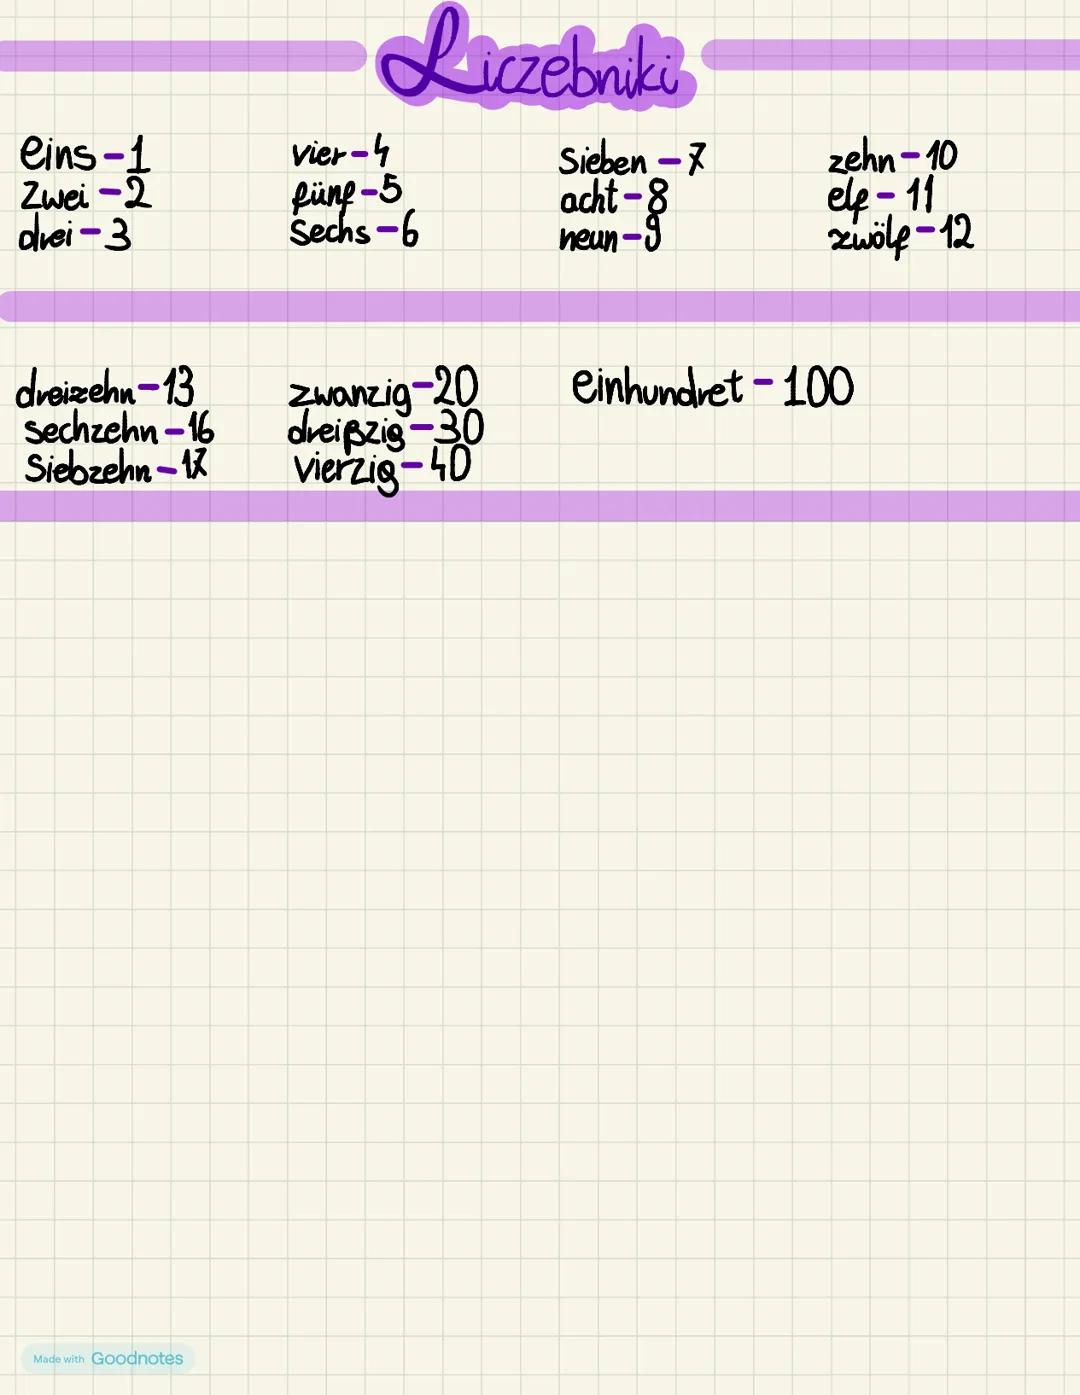 Liczebniki
eins - 1
zwei - 2
drei - 3
vier - 4
fünf - 5
sechs - 6
Sieben - 7
acht - 8
neun - 9
zehn - 10
elf - 11
zwölf - 12
dreizehn - 13
sechzehn - 16
Siebzehn - 17
zwanzig - 20
dreißzig - 30
vierzig - 40
einhundret - 100
Made with Goodnotes